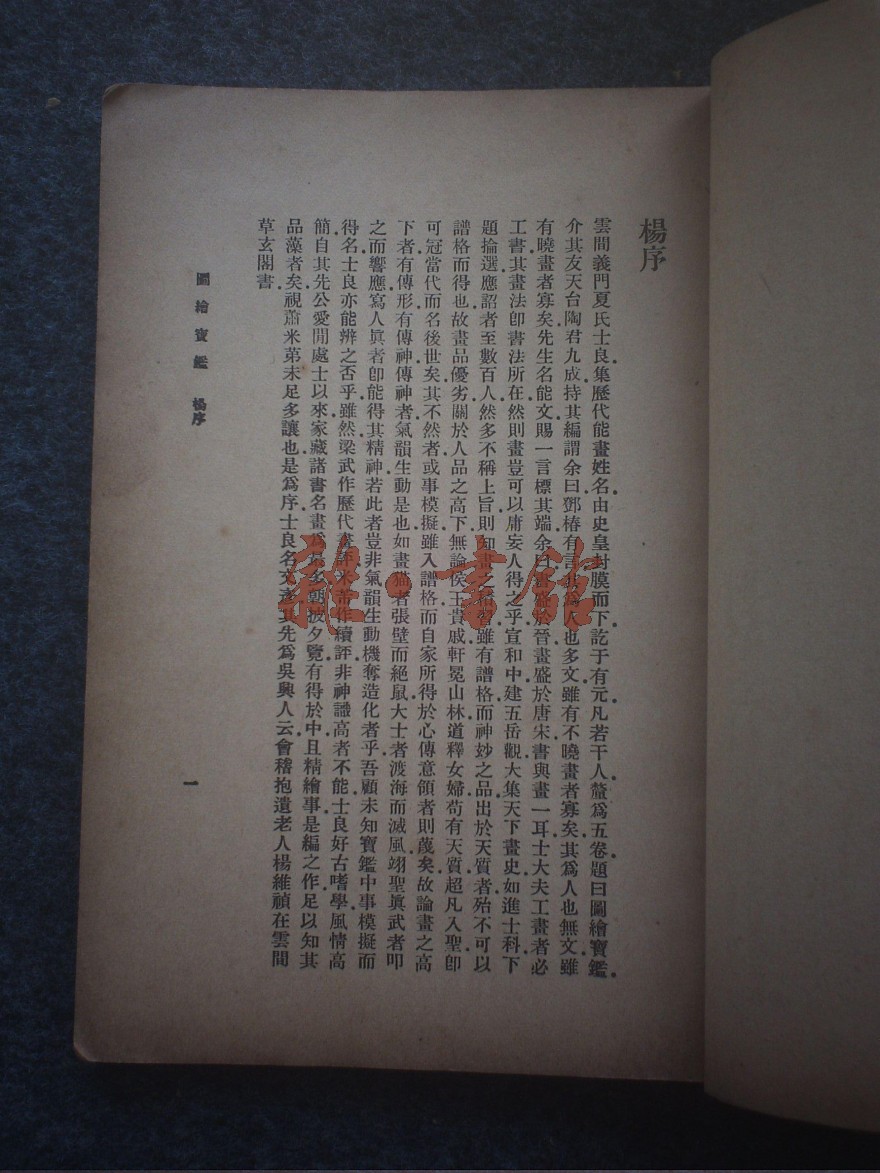 楊序
雲間義門夏氏士良集歷代能畫姓名由史皇封膜而下訖于有元凡若干人釐爲五卷題曰圖繪寶鑑
介其友天台陶君九成持其編謂余曰鄧椿有言其爲人也多文雖有不曉畫者寡矣其爲人也無文雖
有曉畫者寡矣先生名能文賜一言標其端余曰書盛於晉畫盛於唐宋書與畫一耳士大夫工畫者必
工書其畫法卽書法所在然則畫豈可以庸妄人得之乎宣和中建五岳觀大集天下畫史如進士科下
題掄選應詔者至數百人然多不稱上旨則知畫之積習雖有譜格而神妙之品出於天質者殆不可以
譜格而得也故畫品優劣關於人品之高下無論侯王貴戚軒冕山林道釋女婦苟有天質超凡入聖卽
可冠當代而名後世矣其不然者或事模擬雖入譜格而自家所得於心傳意領者則蔑矣故論畫之高
下者有傳形有傳神傳神者氣韻生動是也如畫猫者張壁而絕鼠大士者渡海而滅風翊聖眞武者叩
之而響應寫人眞者卽能得其精神若此者豈非氣韻生動機奪造化者乎吾顧未知寶鑑中事模擬而
得名士良亦能辨之否乎雖然梁武作歷代書評米芾作續評非神識高者不能士良好古嗜學風情高
簡自其先公愛閒處士以來家藏諸書名畫爲最多朝披夕覽有得於中且精繪事是編之作足以知其
品藻者矣視蕭米第未足多讓也是爲序士良名文彥其先爲吳興人云會稽抱遺老人楊維禎在雲間
草玄閣書
圖繪寶鑑 楊序
一
雜·書館